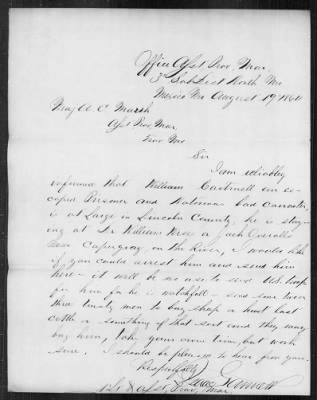 Office Asst. Prov. Mar.
3d Sub Dist North Mo
Mexico Mo August 19 1864
Maj A. C. Marsh
Asst Pro Mar
Troy Mo
Sir
I am reliably
informed that William Cartmell an es-
caped Prisoner and Notorious bad
is at Large in Lincoln County, he is stay-
ing at Dr William or Jack
near on the River, I would like
if you could arrest him and send him
here - it will be no use to send U.S. troops
for him for he is watchful. send some two or
three trusty men to buy sheep or hunt lost
cattle or something of that sort and they may
bag him, take your own time, but work
sure. I should be pleased to hear from you.
Respectfully
Isaac Gannett
1st Lt & Asst. Prov. Mar.